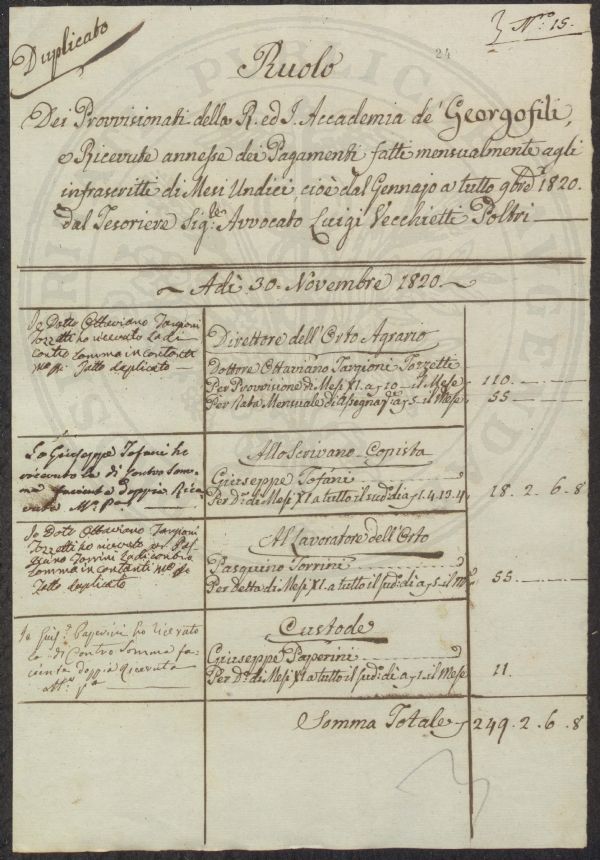 Duplicato
N.º 15.
24
Ruolo
Dei Provvisionati della R. ed I. Accademia de' Georgofili,
e Ricevute annesse dei Pagamenti fatti mensualmente agli
infrascritti di Mesi Undici, cioè dal Gennajo a tutto 9bre 1820.
dal Tesoriere Sig.re Avvocato Luigi Vecchietti Poltri
Adì 30. Novembre 1820.
Io Dotte Ottaviano Targioni
Tozzetti ho ricevuto la di
contro somma in contanti
fatto duplicato
Direttore dell'Orto Agrario
Dottore Ottaviano Targioni Tozzetti
Per Provvisione di Mesi XI. a 10 il Mese 110.
Per Rata Mensuale di Assegna a 5. il Mese 55
Io Giuseppe Tofani ho
ricevuto la di Contro Som=
ma facenta doppia Rice
vuta
Allo Scrivano Copista
Giuseppe Tofani
Per D.i di Mesi XI. a tutto il sud.º dì a 1. 4. 13. 4 18. 2. 6. 8
Io Dott Ottaviano Targioni
Tozzetti ho ricevuto per Pas
quino Torrini la di contro
somma in contanti
fatto duplicato
Al Lavoratore dell'Orto
Pasquino Torrini
Per Detta di Mesi XI. a tutto il sud.º dì a 5. il M.e 55.
Io Gius.e Paperini ho ricevuto
la di Contro Somma fa
cienta doppia Ricevuta
Custode
Giuseppe Paperini
Per D.i di Mesi XI a tutto il sud.º dì a 1. il Mese 11.
Somma Totale 249. 2. 6. 8